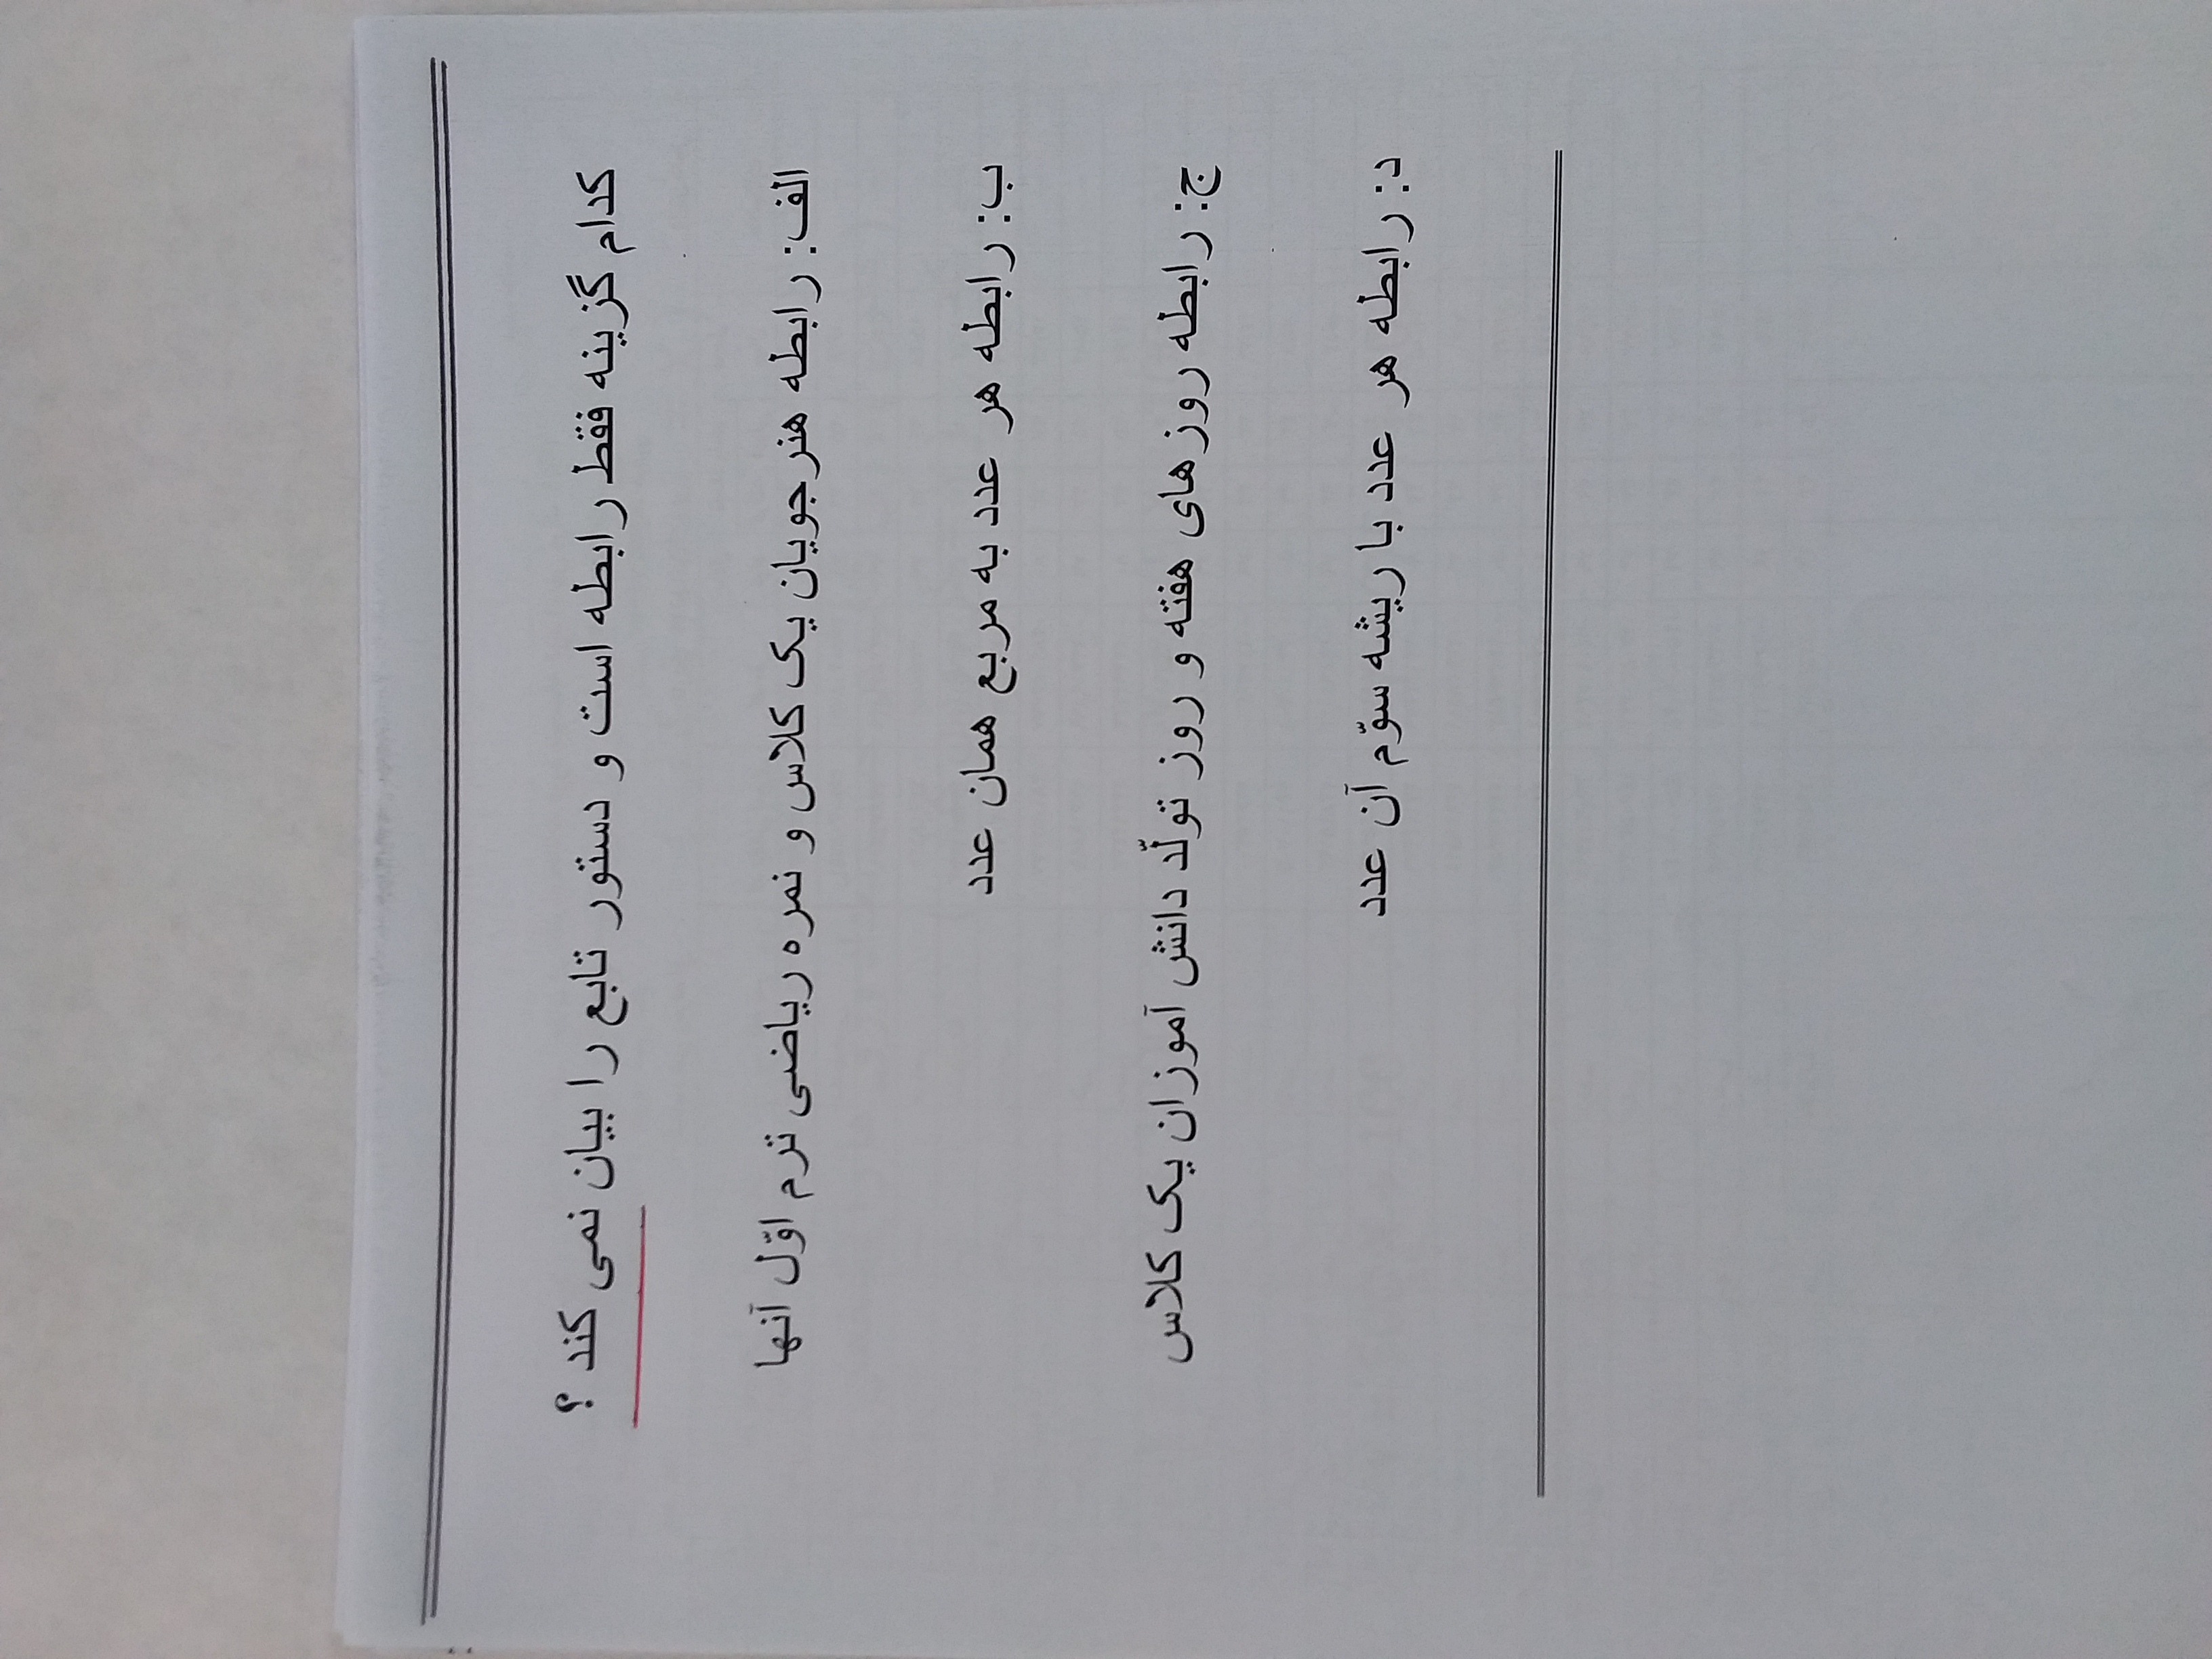 کدام گزینه فقط رابطه است و دستور تابع را بیان نمی کند ؟
الف: رابطه هنرجویان یک کلاس و نمره ریاضی ترم اوّل آنها
ب: رابطه هر عدد به مربع همان عدد
ج: رابطه روزهای هفته و روز تولّد دانش آموزان یک کلاس
د: رابطه هر عدد با ریشه سوّم آن عدد